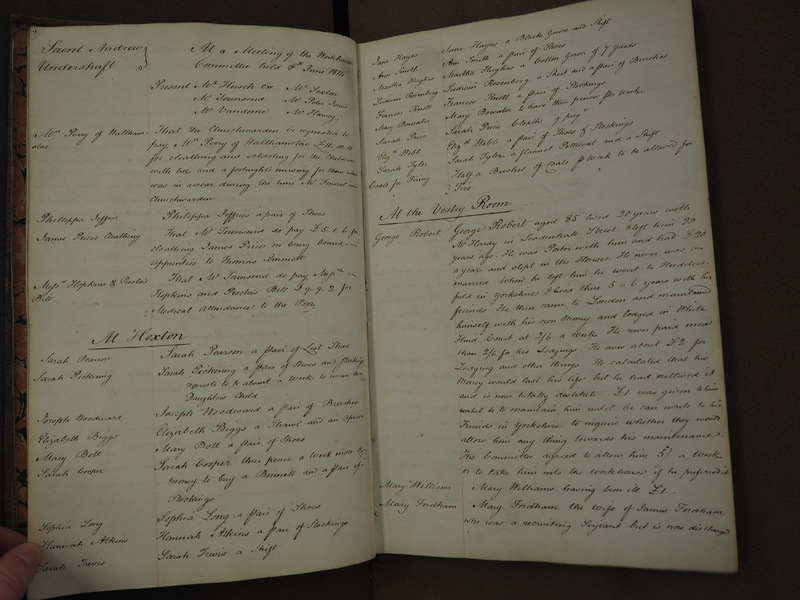 Saint Andrew
Undershaft
At a Meeting of the Workhouse
Committee held 8th June
Present Mr Heusch CW Mr Sexton
Mr Townsend Mr Peter Jones
Mr Vandome Mr Harvey
Mrs Perry of Waltham-
stow
That the Churchwarden be requested to
pay Mrs Perry of Walthamstow
for cloathing and schooling for the Children
with her and a fortnights nursing for them which
was in arrear during the time Mr Tennant was
Churchwarden
Philippa Jeffries
Philippa Jeffries a pair of Shoes
James Prices Cloathing
That Mr Townsend do pay £5.1.6 for
cloathing James Price on being bound
Apprentice to Thomas Emmett
Messrs Hopkins & Proctors
Bill
That Mr Townsend do pay Messrs
Hopkins and Proctors Bill £9.9.2 for
Medical Attendance to the Poor
At Hoxton
Sarah Pearson
Sarah Pearson a pair of List Shoes
Sarah Pickering
Sarah Pickering a pair of Shoes and Stockings
requests to be about a Week to wean her
Daughters Child
Joseph Woodward
Joseph Woodward a pair of Breeches
Elizabeth Biggs
Elizabeth Biggs a Shawl and an Apron
Mary Bott
Mary Bott a pair of Shoes
Sarah Cooper
Sarah Cooper three pence a Week more &
money to buy a Bonnett and a pair of
Stockings
Sophia Long
Sophia Long a pair of Shoes
Hannah Atkins
Hannah Atkins a pair of Stockings
Sarah Trewis
Sarah Trewis a Shift
Jane Hayes
Jane Hayes a Black Gown and Shift
Ann Smith
Ann Smith a pair of Shoes
Martha Hughes
Martha Hughes a Cotton Gown of 7 yards
Ludovic Rosenberg
Ludovic Rosenberg a Shirt and a pair of Breeches
Frances Knott
Frances Knott a pair of Stockings
Mary Bowater
Mary Bowater to have three pence pr week
Sarah Price
Sarah Price Cloaths
Elizth Webb
Elizth Webb a pair of Shoes & Stockings
Sarah Tyler
Sarah Tyler a flannel Petticoat and a Shift
Coals for Firing
Half a Bushel of Coals pr Week to be allowed for
Fire
At the Vestry Room
George Robert
George Robert aged 85 lived 20 years with
Mr Hardy in Leadenhall Street & left him 20
years ago. He was Porter with him and had £20
a year and slept in the House. He never was
married. When he left him he went to Hudders-
field in Yorkshire & lived there 5 or 6 years with his
friends. He then came to London and maintained
himself with his own Money and lodged in White
Hind Court at 2/6 a Week. He never paid more
than 2/6 for his Lodgings. He owes about £2 for
Lodging and other things. He calculated that his
Money would last his life but he had outlived it
and is now totally destitute. £1 was given to him
to maintain him until he can write to his
Friends in Yorkshire to inquire whether they would
allow him any thing towards his maintenance.
The Committee agreed to allow him 5/ a Week
or to take him into the Workhouse if he preferred it
Mary Williams
Mary Williams having been ill £1
Mary Fordham
Mary Fordham the wife of James Fordham
who was a recruiting Serjeant but is now discharged